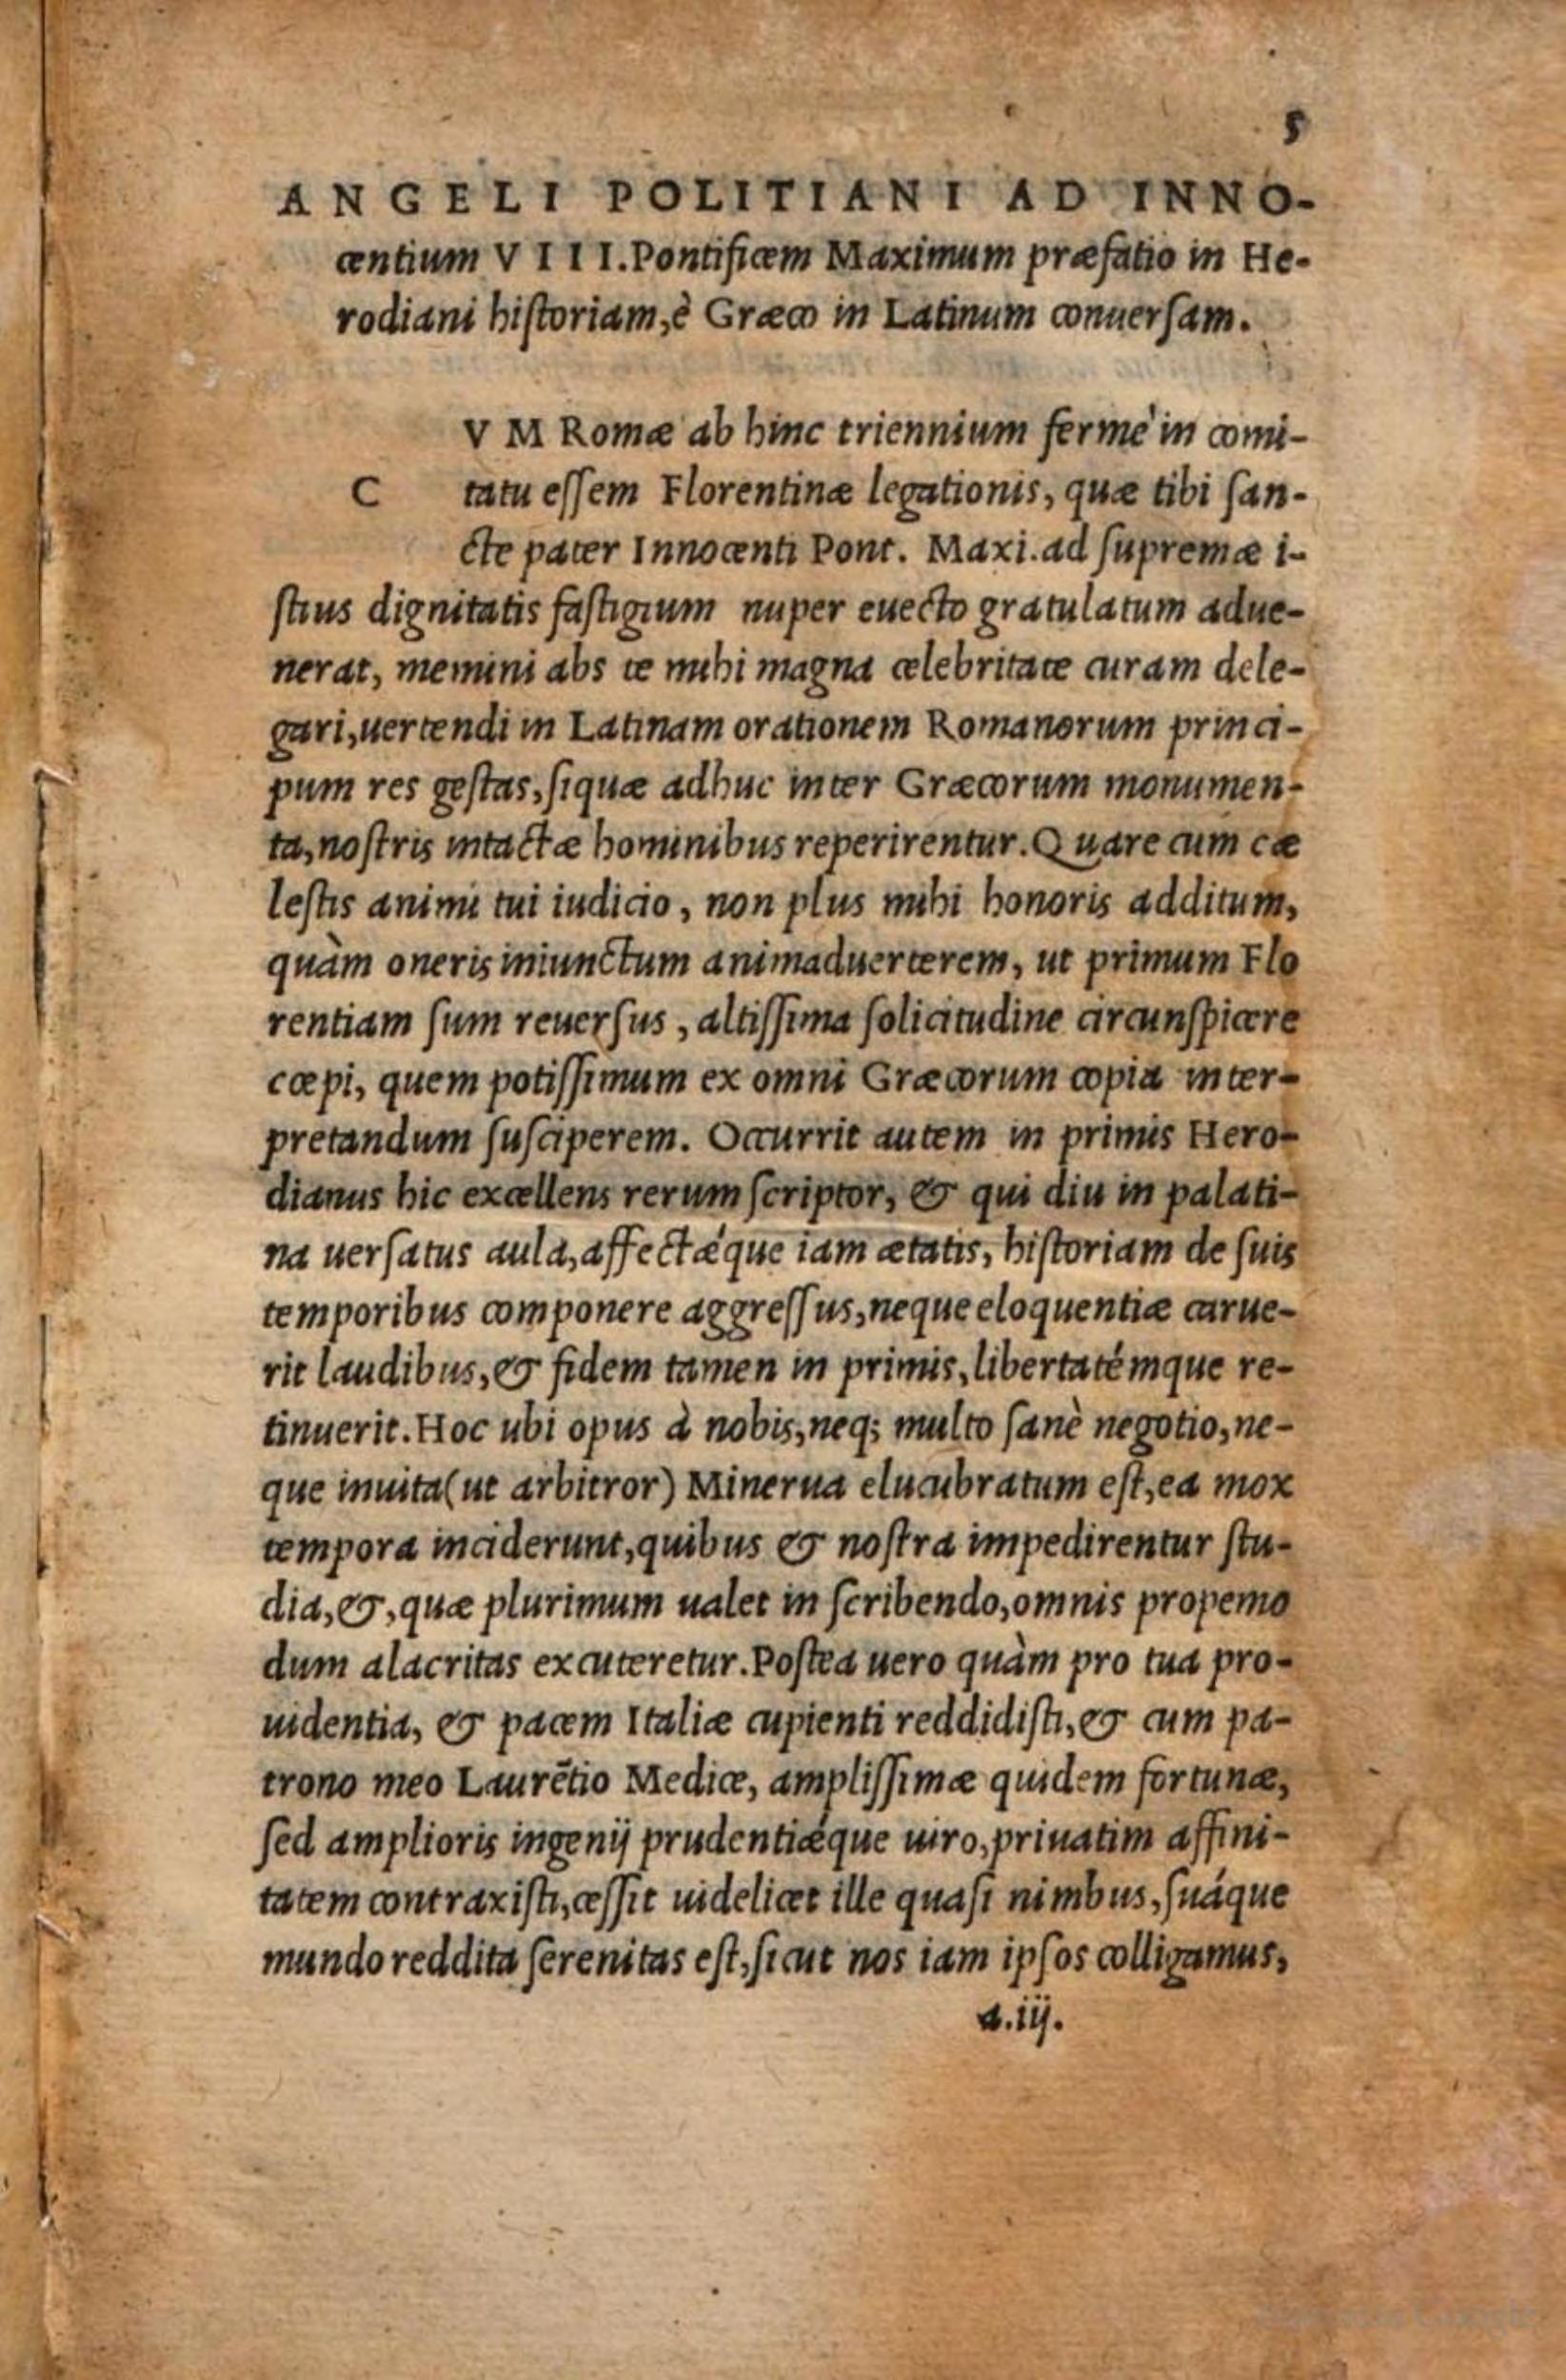 5
ANGELI POLITIANI AD INNO-
centium VIII. Pontificem Maximum præfatio in He-
rodiani hiſtoriam, è Græco in Latinum conuerſam.
VM Romæ ab hinc triennium fermè in comi-
C tatu eſſem Florentinæ legationis, quæ tibi ſan-
cte pater Innocenti Pont. Maxi. ad ſupremæ i-
ſtius dignitatis faſtigium nuper euecto gratulatum adue-
nerat, memini abs te mihi magna celebritate curam dele-
gari, uertendi in Latinam orationem Romanorum princi-
pum res geſtas, ſiquæ adhuc inter Græcorum monumen-
ta, noſtris intactæ hominibus reperirentur. Quare cum cæ
leſtis animi tui iudicio, non plus mihi honoris additum,
quàm oneris iniunctum animaduerterem, ut primum Flo
rentiam ſum reuerſus, altiſſima ſolicitudine circunſpicere
cœpi, quem potiſſimum ex omni Græcorum copia inter-
pretandum ſuſciperem. Occurrit autem in primis Hero-
dianus hic excellens rerum ſcriptor, & qui diu in palati-
na uerſatus aula, affectǽque iam ætatis, hiſtoriam de ſuis
temporibus componere aggreſſus, neque eloquentiæ carue-
rit laudibus, & fidem tamen in primis, libertatémque re-
tinuerit. Hoc ubi opus à nobis, neq; multo ſanè negotio, ne-
que inuita (ut arbitror) Minerua elucubratum eſt, ea mox
tempora inciderunt, quibus & noſtra impedirentur ſtu-
dia, &, quæ plurimum ualet in ſcribendo, omnis propemo
dum alacritas excuteretur. Poſtea uero quàm pro tua pro-
uidentia, & pacem Italiæ cupienti reddidiſti, & cum pa-
trono meo Laurẽtio Medice, ampliſſimæ quidem fortunæ,
ſed amplioris ingenij prudentiǽque uiro, priuatim affini-
tatem contraxiſti, ceſſit uidelicet ille quaſi nimbus, ſuáque
mundo reddita ſerenitas eſt, ſicut nos iam ipſos colligamus,
a.iij.